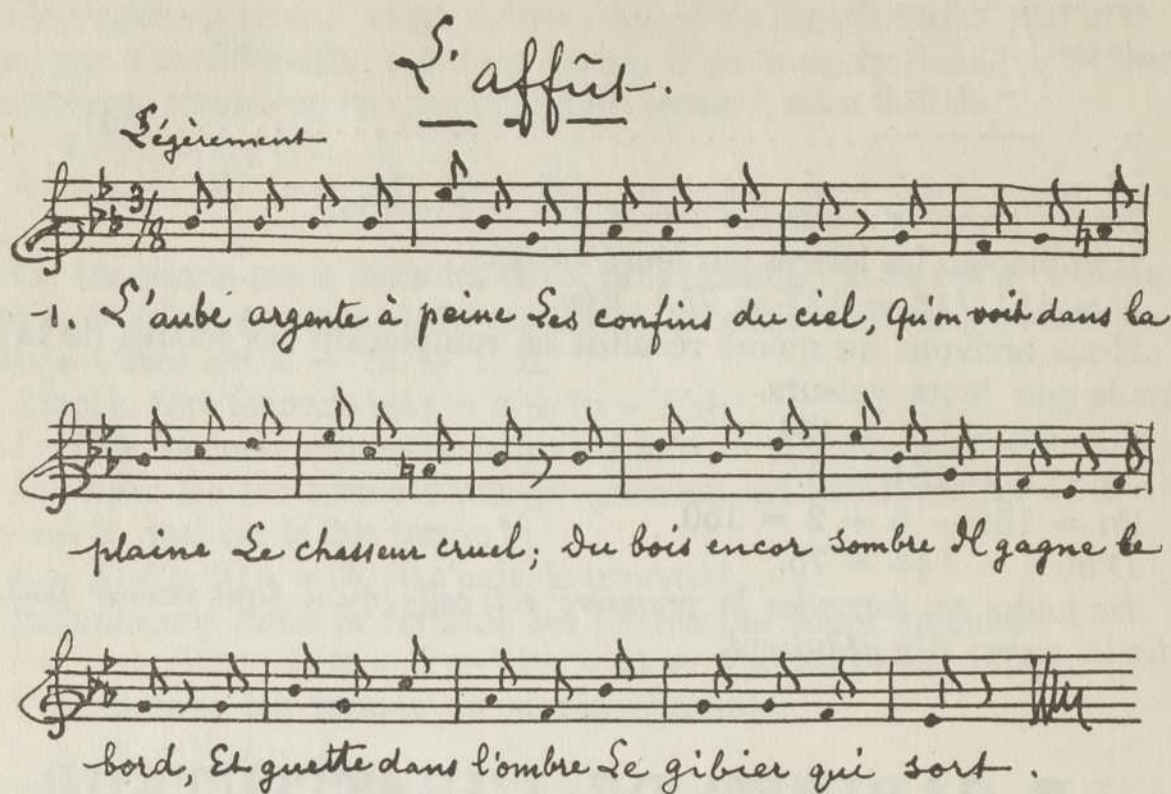 L'affût.
Légèrement
3/8
1. L'aube argente à peine Les confins du ciel, Qu'on voit dans la
plaine Le chasseur cruel; Du bois encor sombre Il gagne le
bord, Et guette dans l'ombre Le gibier qui sort.